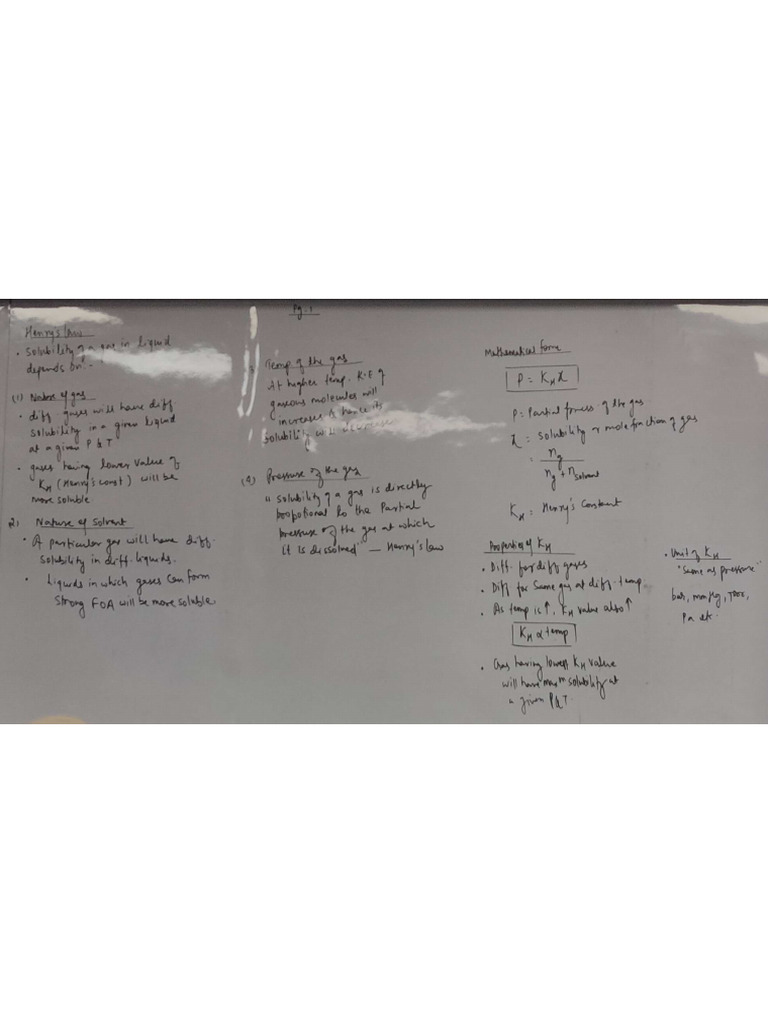 Pg-1
Henry's law
• Solubility of a gas in liquid
depends on:-
(1) Nature of gas
• diff gases will have diff
solubility in a given liquid
at a given P & T
• gases having lower value of
KH (Henry's const) will be
more soluble.
2) Nature of Solvent
• A particular gas will have diff.
Solubility in diff. liquids.
• Liquids in which gases can form
Strong FOA will be more soluble.
3 Temp of the gas
At higher temp. K.E of
gaseous molecules will
increases & hence its
solubility will decreases
(4) Pressure of the gas
"Solubility of a gas is directly
propotional to the Partial
pressure of the gas at which
it is dissolved" — Henry's law
Mathematical form
P = KH X
P = Partial press of the gas
X = Solubility or mole fraction of gas
= ng / ng + nsolvent
KH = Henry's Constant
Properties of KH
• Diff. for diff gases
• Diff for Same gas at diff. temp.
• As temp is ↑, KH value also ↑
KH α temp
• Gas having lowest KH value
will have maxm solubility at
a given P & T.
• Unit of KH
"Same as pressure"
bar, mmHg, Torr,
Pa etc.